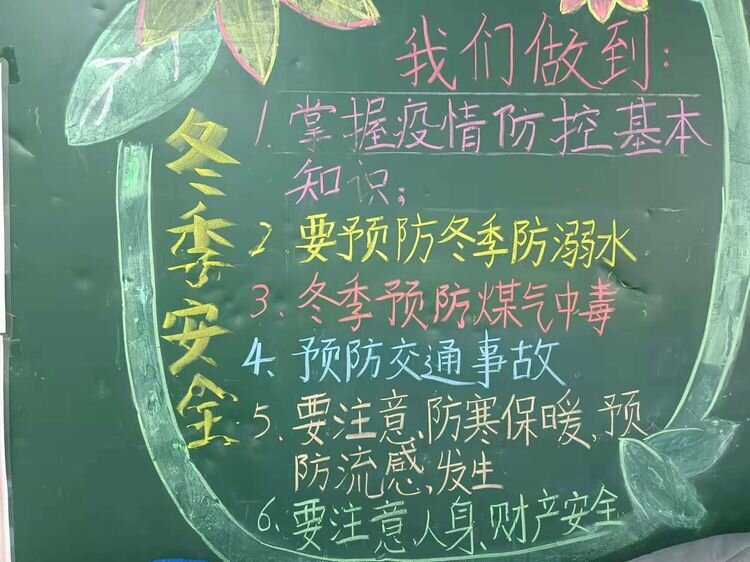 冬季安全
我们做到：
1.掌握疫情防控基本
知识；
2.要预防冬季防溺水
3.冬季预防煤气中毒
4.预防交通事故
5.要注意、防寒保暖、预
防流感、发生
6.要注意人身、财产安全